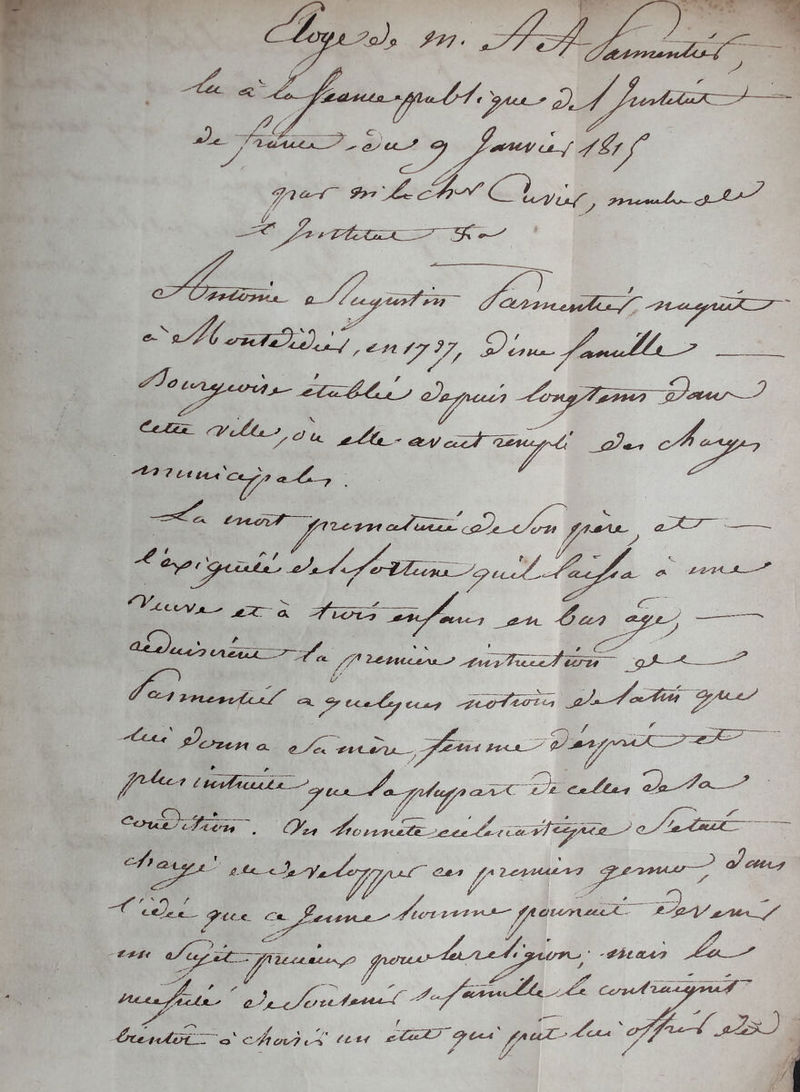 Eloge de M. A A Parmentier,
lu à la seance publique de l'Institut
de france, du 9 Janvier 1815
par m le chr Cuvier, membre de
l'Institut &a
Antoine Augustin Parmentier, naquit
à Montdidier, en 1737, d'une famille
Bourgeoise établie depuis longtems dans
cette ville, où elle avait rempli des charges
municipales.
La mort prematurée de son père, et
l'exiguité de la fortune qu'il laissa à une
Veuve et à trois enfans en bas âge,
réduisirent la première instruction de
Parmentier a quelques notions de latin que
lui donna sa mère, femme d'esprit et
plus instruite que la plupart de celles de sa
condition. Un honnête ecclesiastique s'etait
chargé de developper ces premiers germes, dans
l'idée que ce Jeune homme pourrait devenir
un sujet precieux pour la religion; mais la
necessité de soutenir sa famille le contraignit
bientôt à choisir un état qui pût lui offrir des